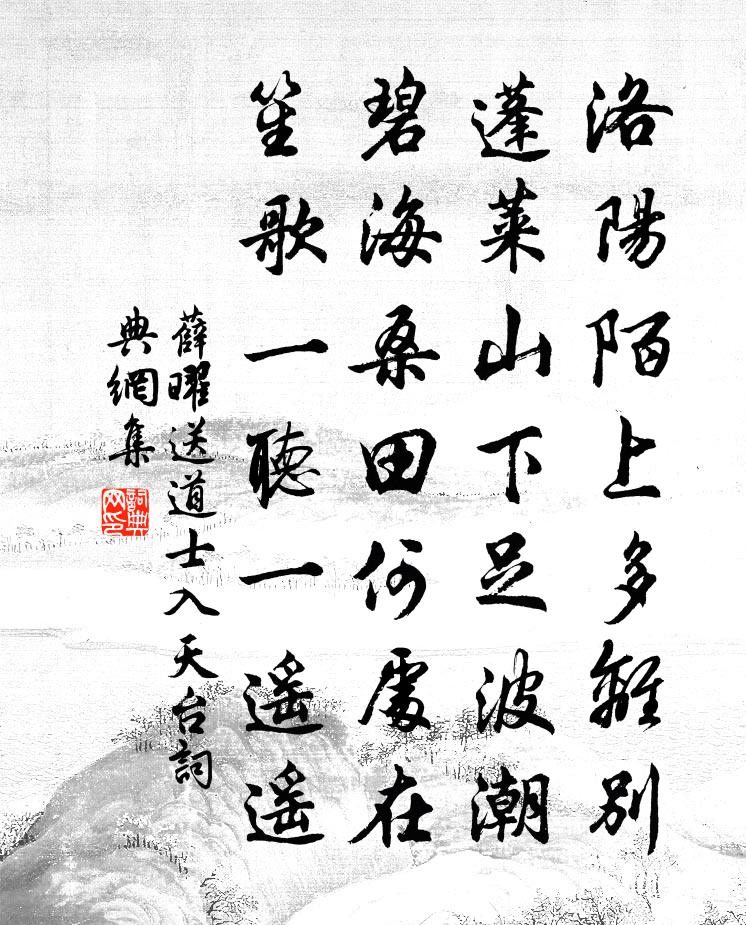 洛陽陌上多離別
蓬萊山下足波潮
碧海桑田何處在
笙歌一聽一遥遥
薛曜送道士入天台詞
典網集
詞典
网印